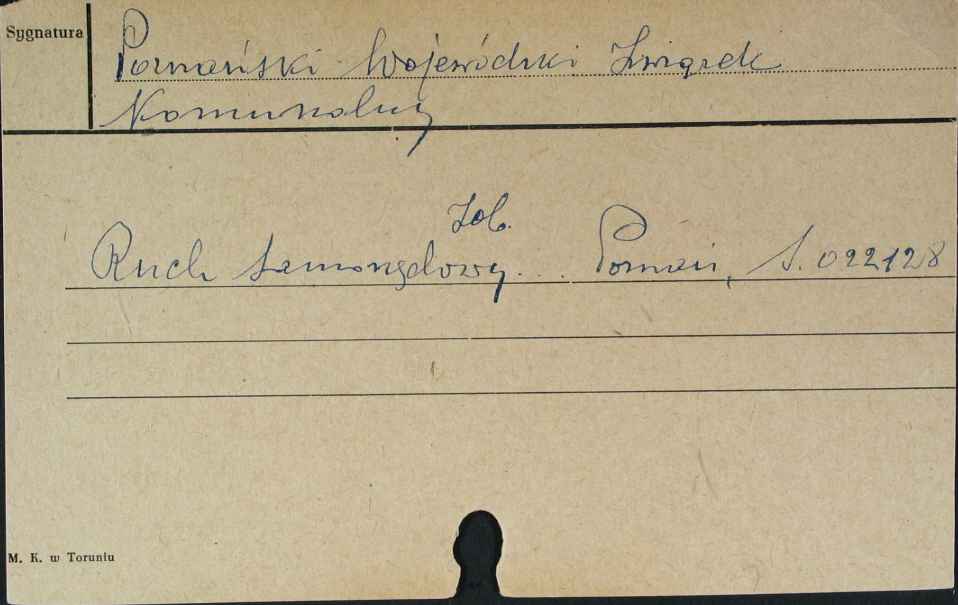 Sygnatura
Poznański Wojewódzki Związek
Komunalny
Zob.
Ruch samorządowy... Poznań, S. 022128
M. K. w Toruniu